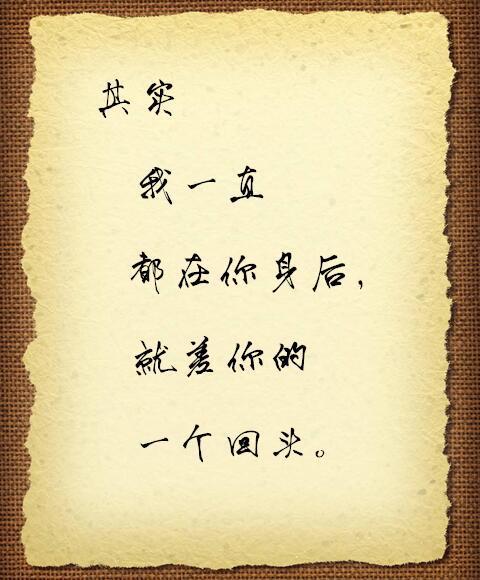 其实
我一直
都在你身后，
就差你的
一个回头。